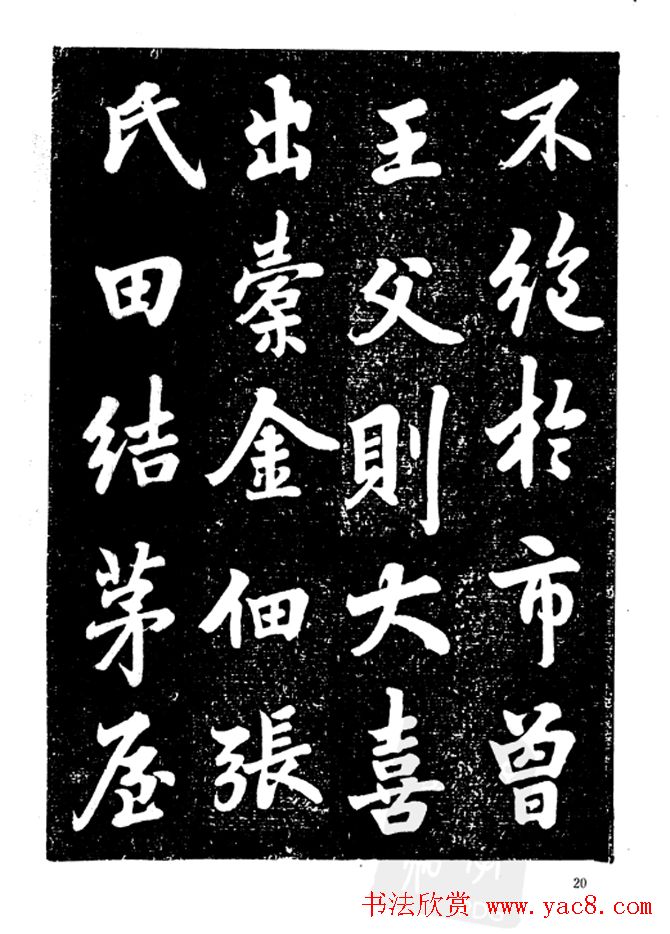 不絶於市曾
王父則大喜
出橐金佃張
氏田結茅屋
20
书法欣赏 www.yac8.com